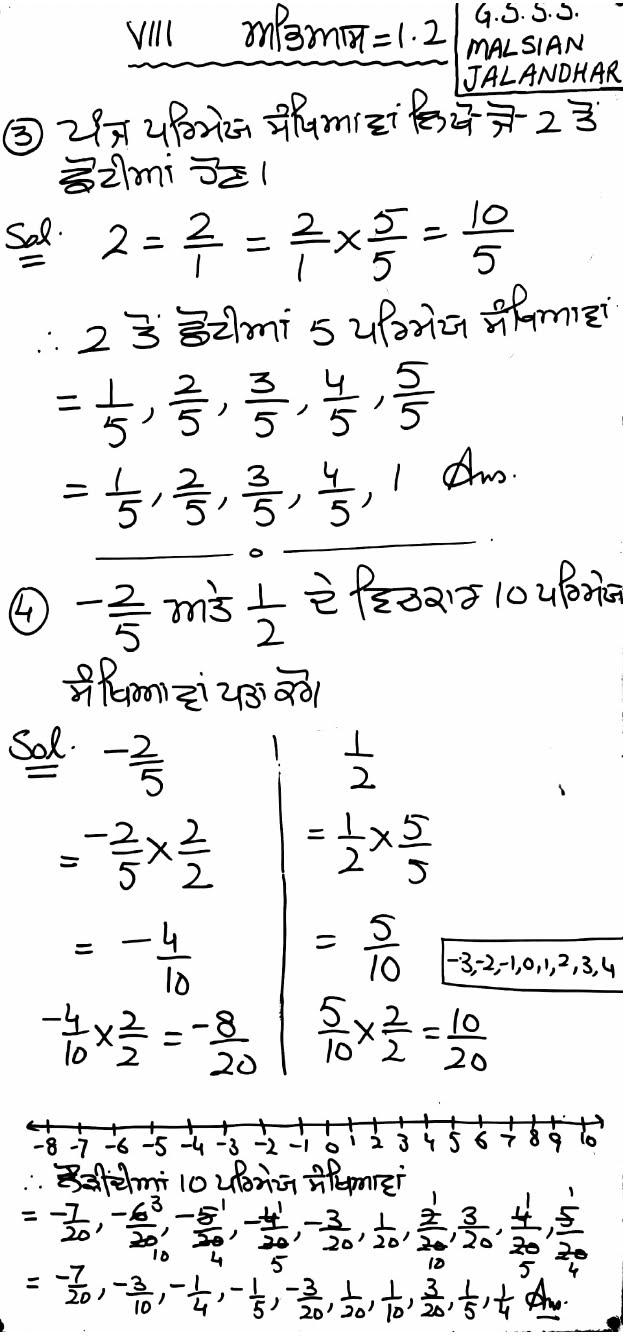 VIII ਅਭਿਆਸ = 1.2
G.S.S.S.
MALSIAN
JALANDHAR
③ ਪੰਜ ਪਰਿਮੇਯ ਸੰਖਿਆਵਾਂ ਲਿਖੋ ਜੋ 2 ਤੋਂ
ਛੋਟੀਆਂ ਹੋਣ।
Sol. 2 = 2/1 = 2/1 × 5/5 = 10/5
∴ 2 ਤੋਂ ਛੋਟੀਆਂ 5 ਪਰਿਮੇਯ ਸੰਖਿਆਵਾਂ
= 1/5, 2/5, 3/5, 4/5, 5/5
= 1/5, 2/5, 3/5, 4/5, 1 Ans.
④ -2/5 ਅਤੇ 1/2 ਦੇ ਵਿਚਕਾਰ 10 ਪਰਿਮੇਯ
ਸੰਖਿਆਵਾਂ ਪਤਾ ਕਰੋ।
Sol. -2/5 | 1/2
= -2/5 × 2/2 | = 1/2 × 5/5
= -4/10 | = 5/10
-3,-2,-1,0,1,2,3,4
-4/10 × 2/2 = -8/20 | 5/10 × 2/2 = 10/20
-8 -7 -6 -5 -4 -3 -2 -1 0 1 2 3 4 5 6 7 8 9 10
∴ ਲੋੜੀਂਦੀਆਂ 10 ਪਰਿਮੇਯ ਸੰਖਿਆਵਾਂ
= -7/20, -6/20 3/10, -5/20 1/4, -4/20 1/5, -3/20, 1/20, 2/20 1/10, 3/20, 4/20 1/5, 5/20 1/4
= -7/20, -3/10, -1/4, -1/5, -3/20, 1/20, 1/10, 3/20, 1/5, 1/4 Ans.